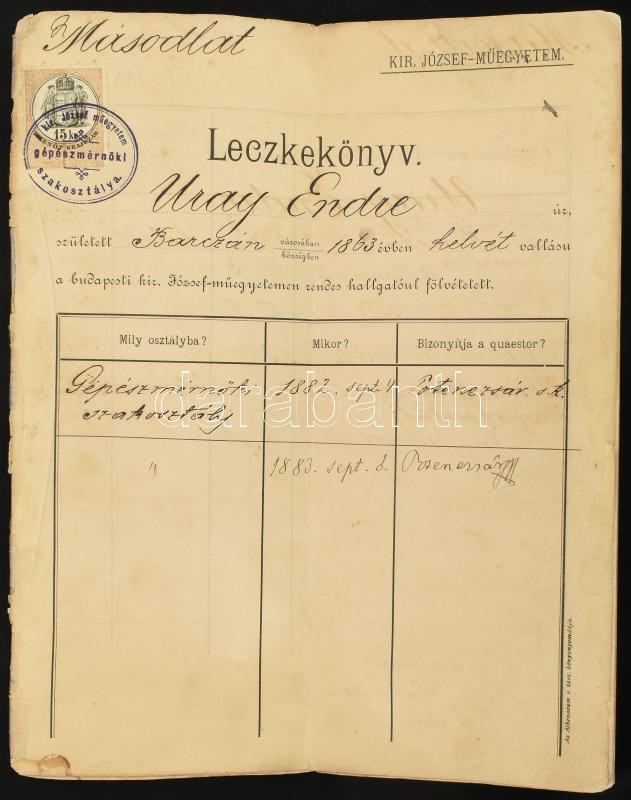 Másodlat
KIR. JÓZSEF-MŰEGYETEM.
15 kr.
kir. József műegyetem
gépészmérnöki
szakosztálya.
Leczkekönyv.
Uray Endre úr,
született Barczán városában községben 1863 évben helvét vallásu
a budapesti kir. József-műegyetemen rendes hallgatóul fölvétetett.
Mily osztályba? Mikor? Bizonyítja a quaestor?
Gépészmérnöki 1882. sept. 4. s.k.
szakosztály
" 1883. sept.
darabanth
Az Athenaeum r. társ. könyvnyomdája.